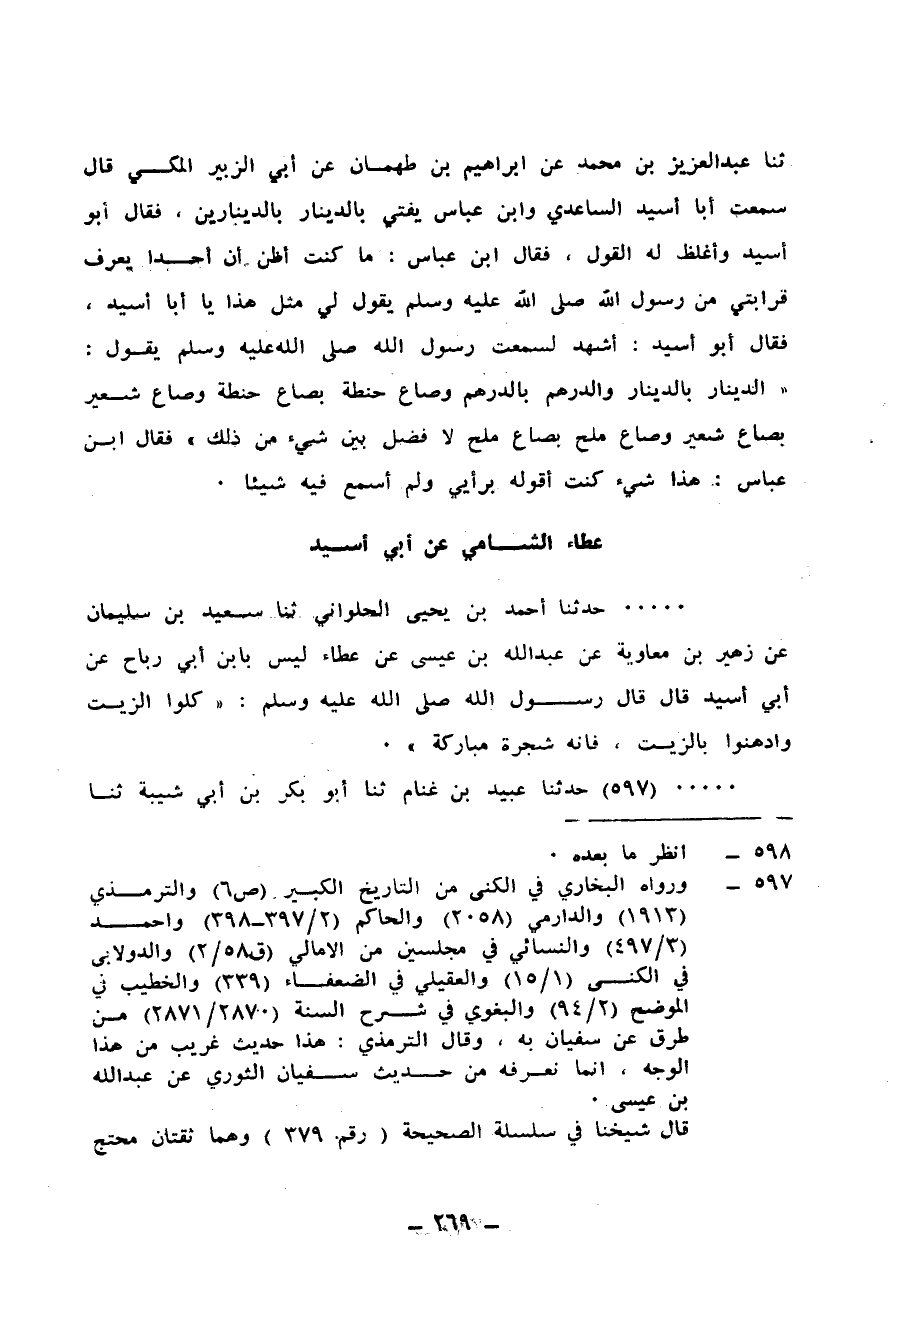 ثنا عبدالعزيز بن محمد عن ابراهيم بن طهمان عن أبي الزبير المكي قال
سمعت أبا أسيد الساعدي وابن عباس يفتي بالدينار بالدينارين ، فقال أبو
أسيد وأغلظ له القول ، فقال ابن عباس : ما كنت أظن أن أحدا يعرف
قرابتي من رسول الله صلى الله عليه وسلم يقول لي مثل هذا يا أبا أسيد ،
فقال أبو أسيد : أشهد لسمعت رسول الله صلى الله عليه وسلم يقول :
« الدينار بالدينار والدرهم بالدرهم وصاع حنطة بصاع حنطة وصاع شعير
بصاع شعير وصاع ملح بصاع ملح لا فضل بين شيء من ذلك » فقال ابن
عباس : هذا شيء كنت أقوله برأيي ولم أسمع فيه شيئا ٠
عطاء الشامي عن أبي أسيد
٠٠٠٠٠ حدثنا أحمد بن يحيى الحلواني ثنا سعيد بن سليمان
عن زهير بن معاوية عن عبدالله بن عيسى عن عطاء ليس بابن أبي رباح عن
أبي أسيد قال قال رسول الله صلى الله عليه وسلم : « كلوا الزيت
وادهنوا بالزيت ، فانه شجرة مباركة » ٠
٠٠٠٠٠ (٥٩٧) حدثنا عبيد بن غنام ثنا أبو بكر بن أبي شيبة ثنا
٥٩٨ – انظر ما بعده ٠
٥٩٧ – ورواه البخاري في الكنى من التاريخ الكبير (ص٦) والترمذي
(١٩١٣) والدارمي (٢٠٥٨) والحاكم (٣٩٧/٢–٣٩٨) واحمد
(٤٩٧/٣) والنسائي في مجلسين من الامالي (ق٢/٥٨) والدولابي
في الكنى (١٥/١) والعقيلي في الضعفاء (٣٣٩) والخطيب في
الموضح (٩٤/٢) والبغوي في شرح السنة (٢٨٧١/٢٨٧٠) من
طرق عن سفيان به ، وقال الترمذي : هذا حديث غريب من هذا
الوجه ، انما نعرفه من حديث سفيان الثوري عن عبدالله
بن عيسى ٠
قال شيخنا في سلسلة الصحيحة ( رقم ٣٧٩ ) وهما ثقتان محتج
– ٢٦٩ –